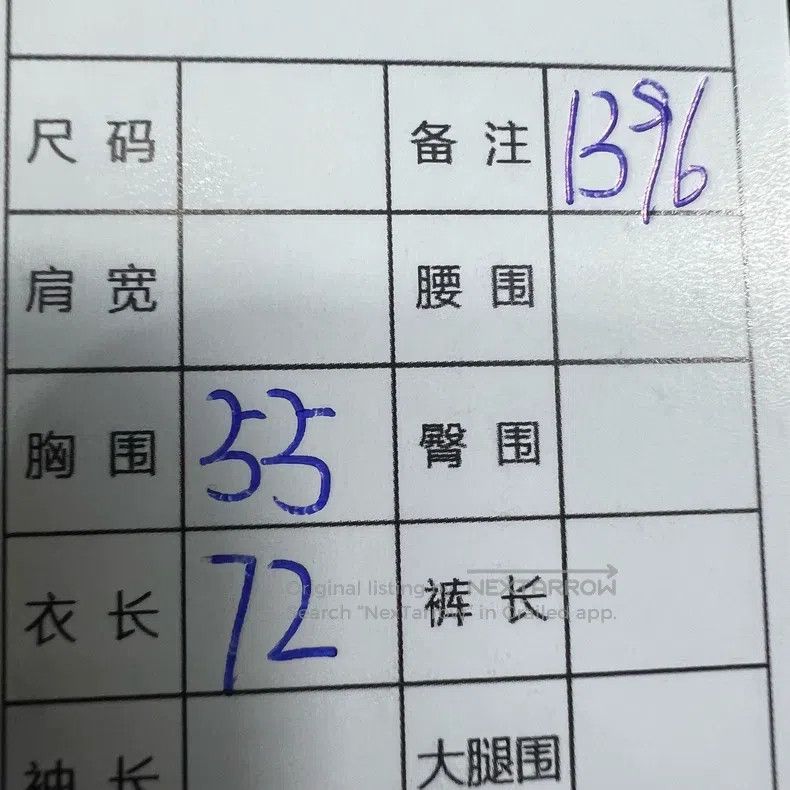 尺 码 备 注 1396
肩 宽 腰 围
胸 围 55 臀 围
衣 长 72 裤 长
Original listing by NEXTARROW
Search "NexTarrow" in Grailed app.
袖 长 大腿围